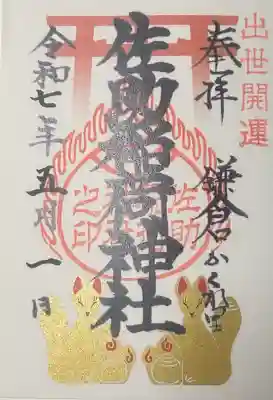 出世開運
奉拝 鎌倉かくれ里
佐助稲荷神社
佐助
之印
令和七年 五月 一日